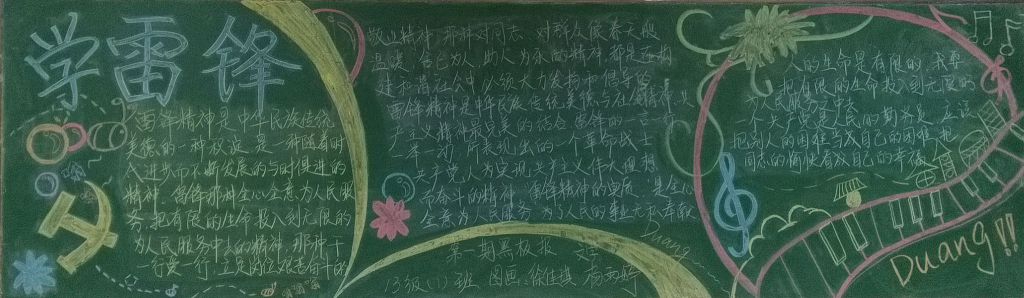 学雷锋
雷锋精神是中华民族传统
美德的一种积淀,是一种随着时
代进步而不断发展的与时俱进的
精神。雷锋那种全心全意为人民服
务,把有限的生命投入到无限的
为人民服务中去的精神,那种干
一行爱一行,立足岗位艰苦奋斗的
精神,那种对同志、对群众
舍己为人,助人为乐的精神都是
建和谐社会中必须大力发扬和倡导的
雷锋精神是中华民族传统美德与
共产主义精神最完美的结合,雷锋的一言
一举一动,所表现出的一个革命战士
共产党人为实现共产主义伟大理想
而奋斗的精神。雷锋精神的实质是全心
全意为人民服务,为了人民的事业无私奉献
第一期黑板报
13级(1)班 图画:徐佳琪
Duang
人的生命是有限的,我要
把有限的生命投入到无限的
为人民服务之中去
一个共产党员是人民的勤务员,应该
把别人的困难当成自己的困难,把
同志的愉快看成自己的幸福
Duang!!